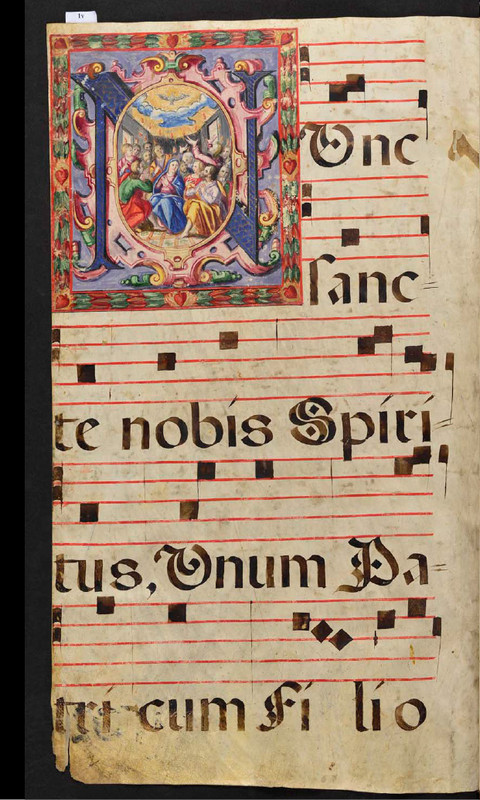 NUnc
sanc=
te nobis Spiri=
tus, Unum Pa=
tri cum Fi lio